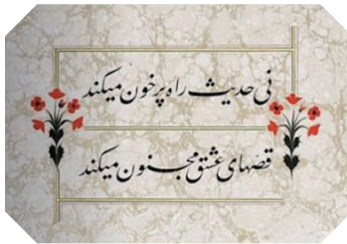 نی حدیث راه پر خون میکند
قصهای عشق مجنون میکند